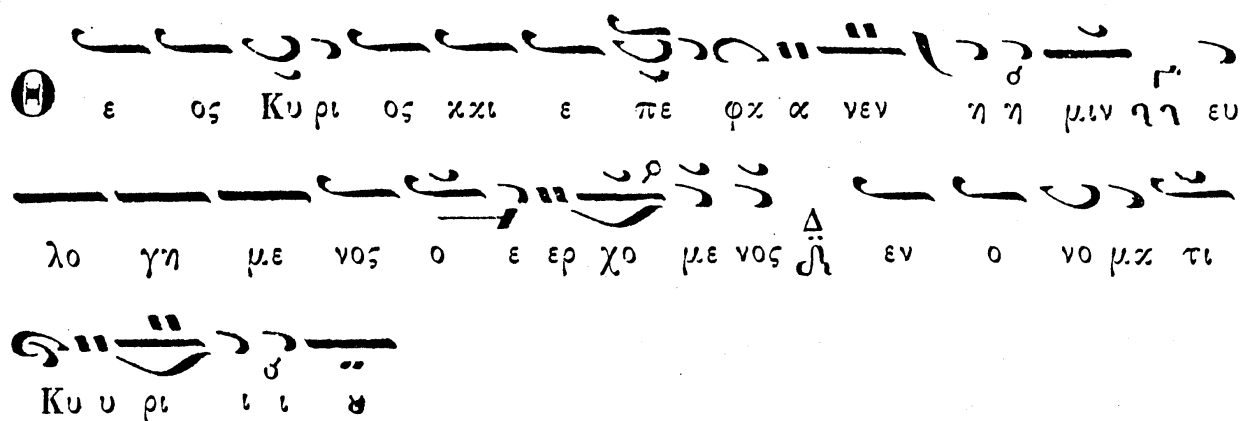 Θ ε ος Κυ ρι ος και ε πε φα α νεν η η μιν η η ευ
λο γη με νος ο ε ερ χο με νος Δ εν ο νο μα τι
Κυ υ ρι ι ι ȣ